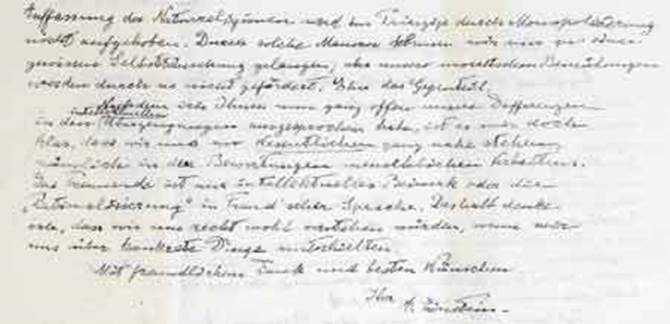 Auffassung der Naturreligionen und im Prinzip durch Monopolisierung
nicht aufgehoben. Durch solche Mauern können wir nur zu einer
gewissen Selbsttäuschung gelangen; aber unsere moralischen Bemühungen
werden durch sie nicht gefördert. Eher das Gegenteil.
Nachdem ich Ihnen nun ganz offen unsere Differenzen
intellektuellen
in den Überzeugungen ausgesprochen habe, ist es mir doch
klar, dass wir uns im Wesentlichen ganz nahe stehen,
nämlich in den Bewertungen menschlichen Verhaltens.
Das Trennende ist nur intellektuelles Beiwerk oder die
„Rationalisierung“ in Freud'scher Sprache. Deshalb denke
ich, dass wir uns recht wohl verstehen würden, wenn wir
uns über konkrete Dinge unterhielten.
Mit freundlichem Dank und besten Wünschen
Ihr A. Einstein.